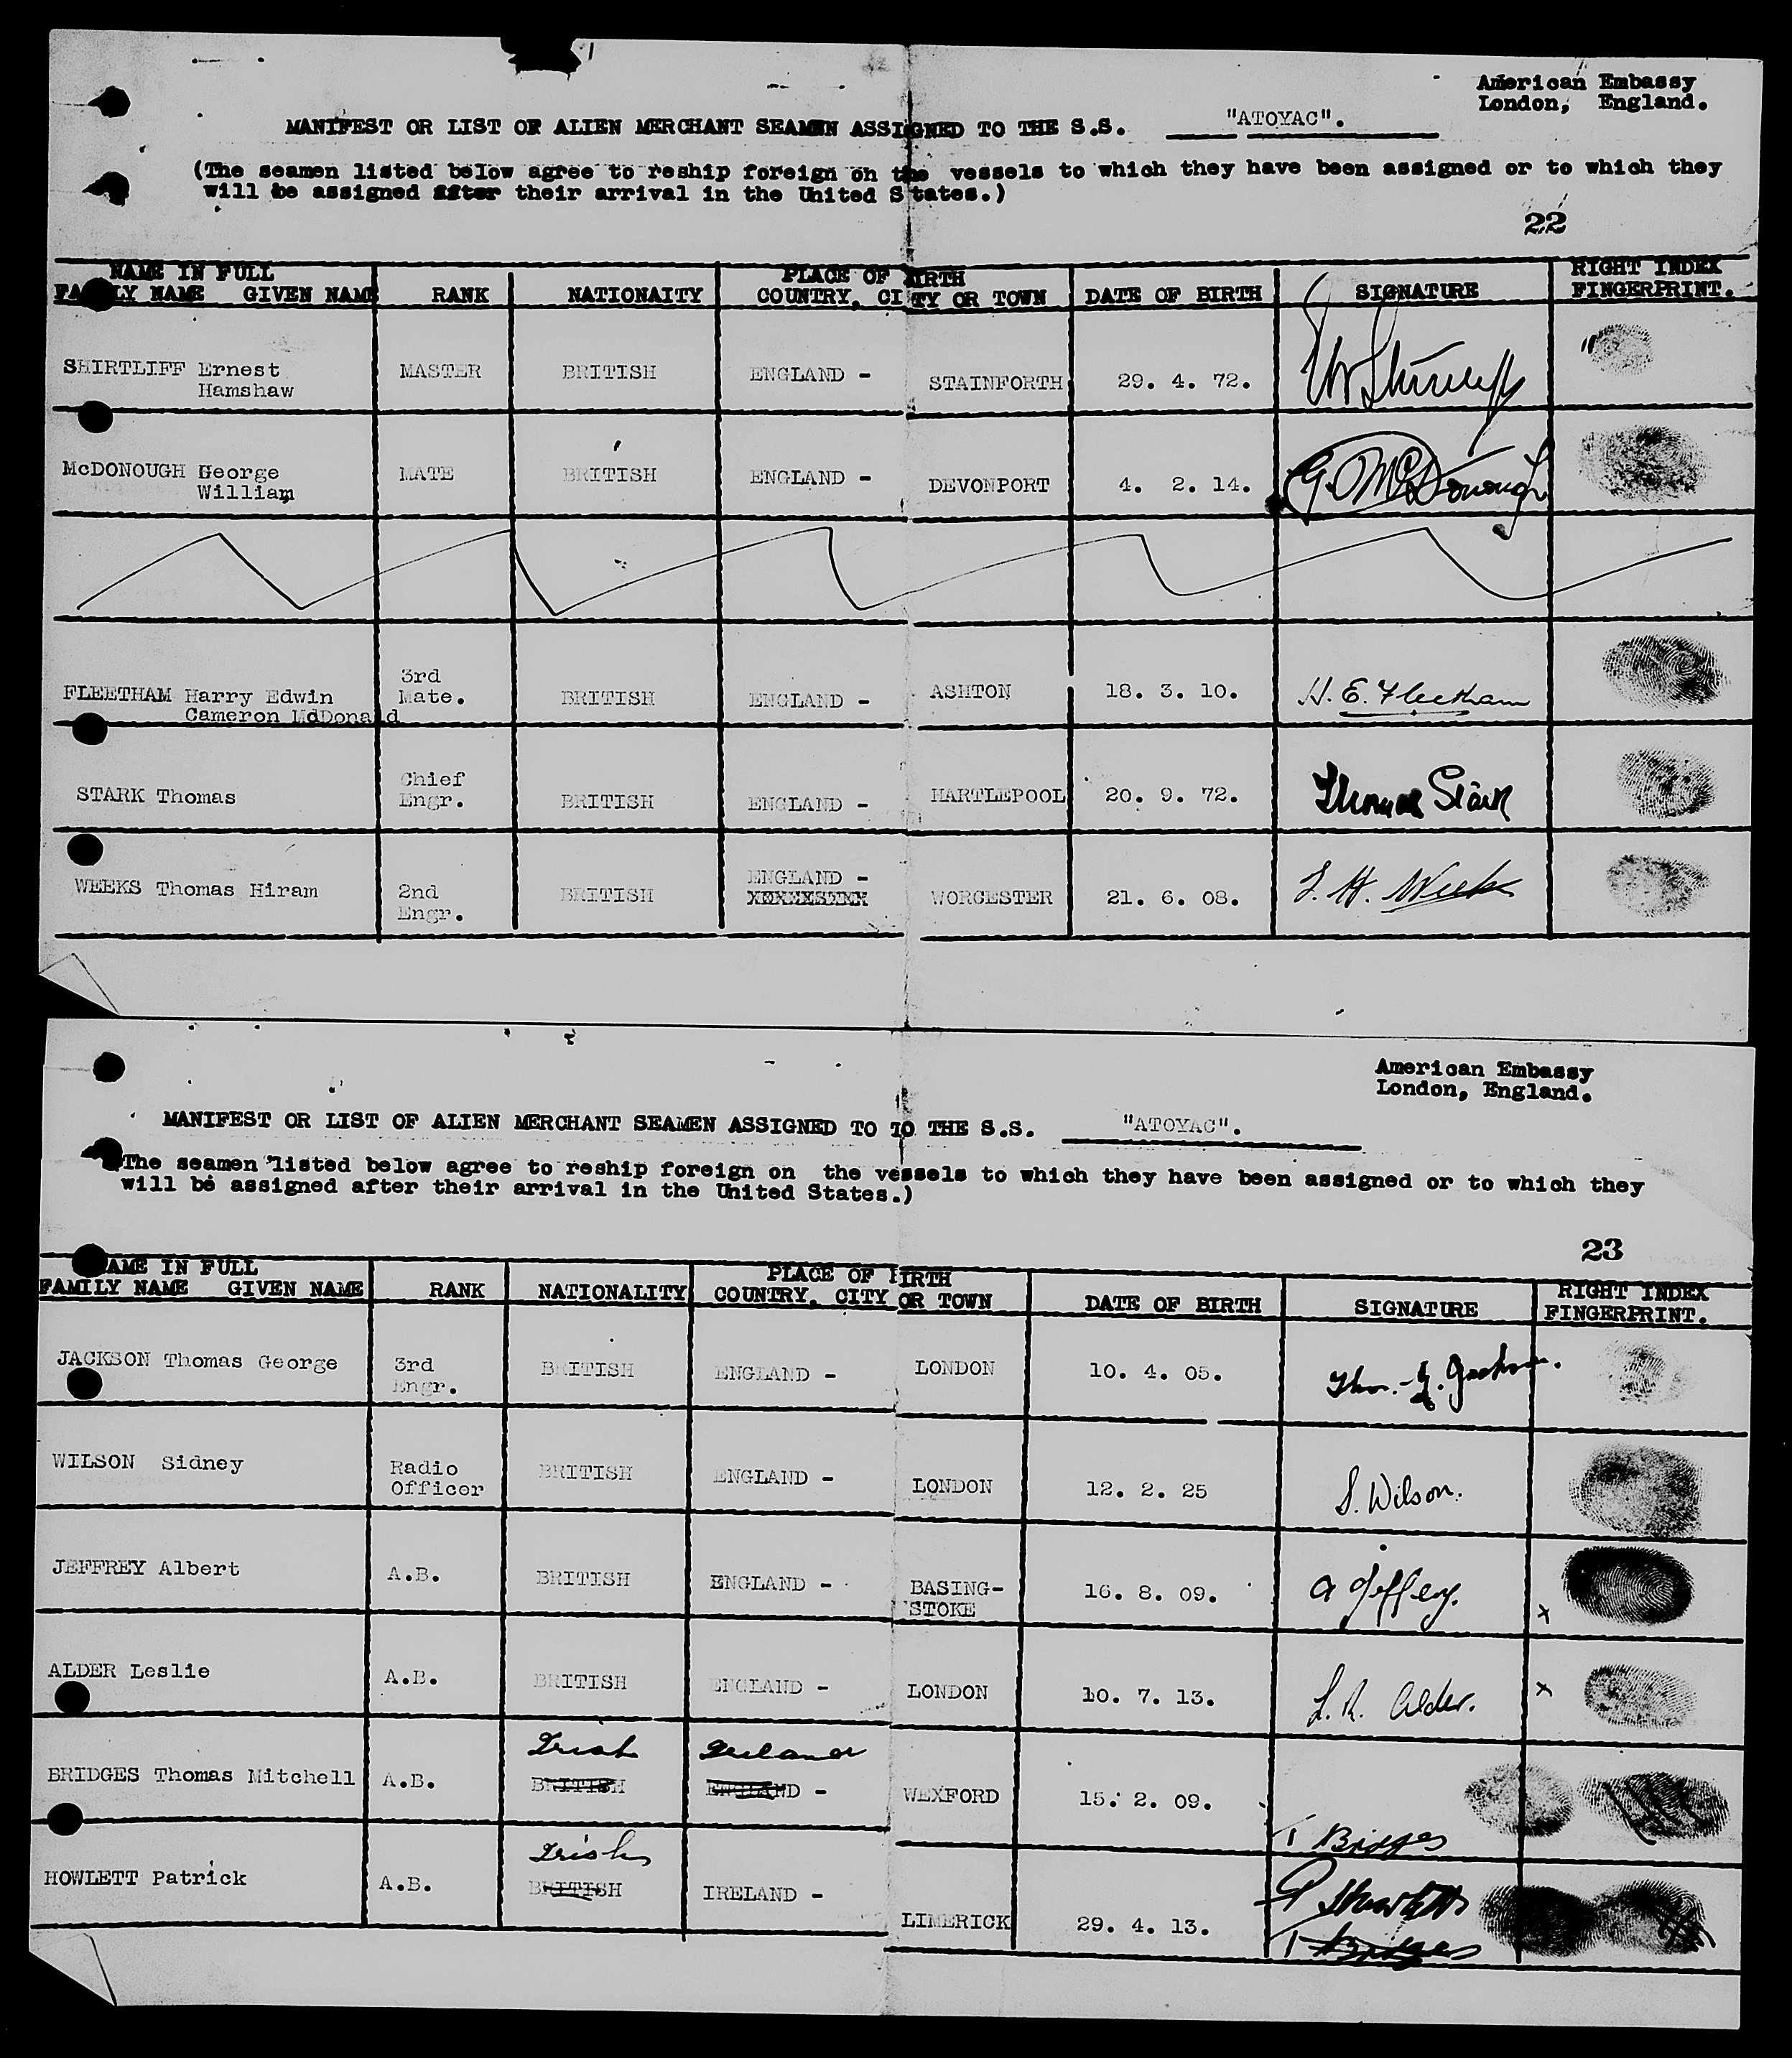 American Embassy
London, England.
MANIFEST OR LIST OF ALIEN MERCHANT SEAMEN ASSIGNED TO THE S.S. "ATOYAC".
(The seamen listed below agree to reship foreign on the vessels to which they have been assigned or to which they
will be assigned after their arrival in the United States.)
22
NAME IN FULL PLACE OF BIRTH RIGHT INDEX
FAMILY NAME GIVEN NAME RANK NATIONAITY COUNTRY, CITY OR TOWN DATE OF BIRTH SIGNATURE FINGERPRINT.
SHIRTLIFF Ernest MASTER BRITISH ENGLAND - STAINFORTH 29. 4. 72.
Hamshaw
McDONOUGH George MATE BRITISH ENGLAND - DEVONPORT 4. 2. 14. G. McDonough
William
3rd
FLEETHAM Harry Edwin Mate. BRITISH ENGLAND - ASHTON 18. 3. 10. H. E. Fleetham
Cameron McDonald
Chief
STARK Thomas Engr. BRITISH ENGLAND - HARTLEPOOL 20. 9. 72. Thomas Stark
ENGLAND -
WEEKS Thomas Hiram 2nd BRITISH WORCESTER 21. 6. 08. T. H. Weeks
Engr.
American Embassy
London, England.
MANIFEST OR LIST OF ALIEN MERCHANT SEAMEN ASSIGNED TO TO THE S.S. "ATOYAC".
(The seamen listed below agree to reship foreign on the vessels to which they have been assigned or to which they
will be assigned after their arrival in the United States.)
23
NAME IN FULL PLACE OF BIRTH RIGHT INDEX
FAMILY NAME GIVEN NAME RANK NATIONALITY COUNTRY, CITY OR TOWN DATE OF BIRTH SIGNATURE FINGERPRINT.
JACKSON Thomas George 3rd BRITISH ENGLAND - LONDON 10. 4. 05. Thos. G. Jackson.
Engr.
WILSON Sidney Radio BRITISH ENGLAND - LONDON 12. 2. 25 S. Wilson.
Officer
JEFFREY Albert A.B. BRITISH ENGLAND - BASING- 16. 8. 09. A Jeffery.
STOKE x
ALDER Leslie A.B. BRITISH ENGLAND - LONDON 10. 7. 13. L. R. Alder. x
Irish Ireland
BRIDGES Thomas Mitchell A.B. BRITISH ENGLAND - WEXFORD 15. 2. 09. T Bridges
Irish
HOWLETT Patrick A.B. BRITISH IRELAND - LIMERICK 29. 4. 13. P Howlett
T Bridges